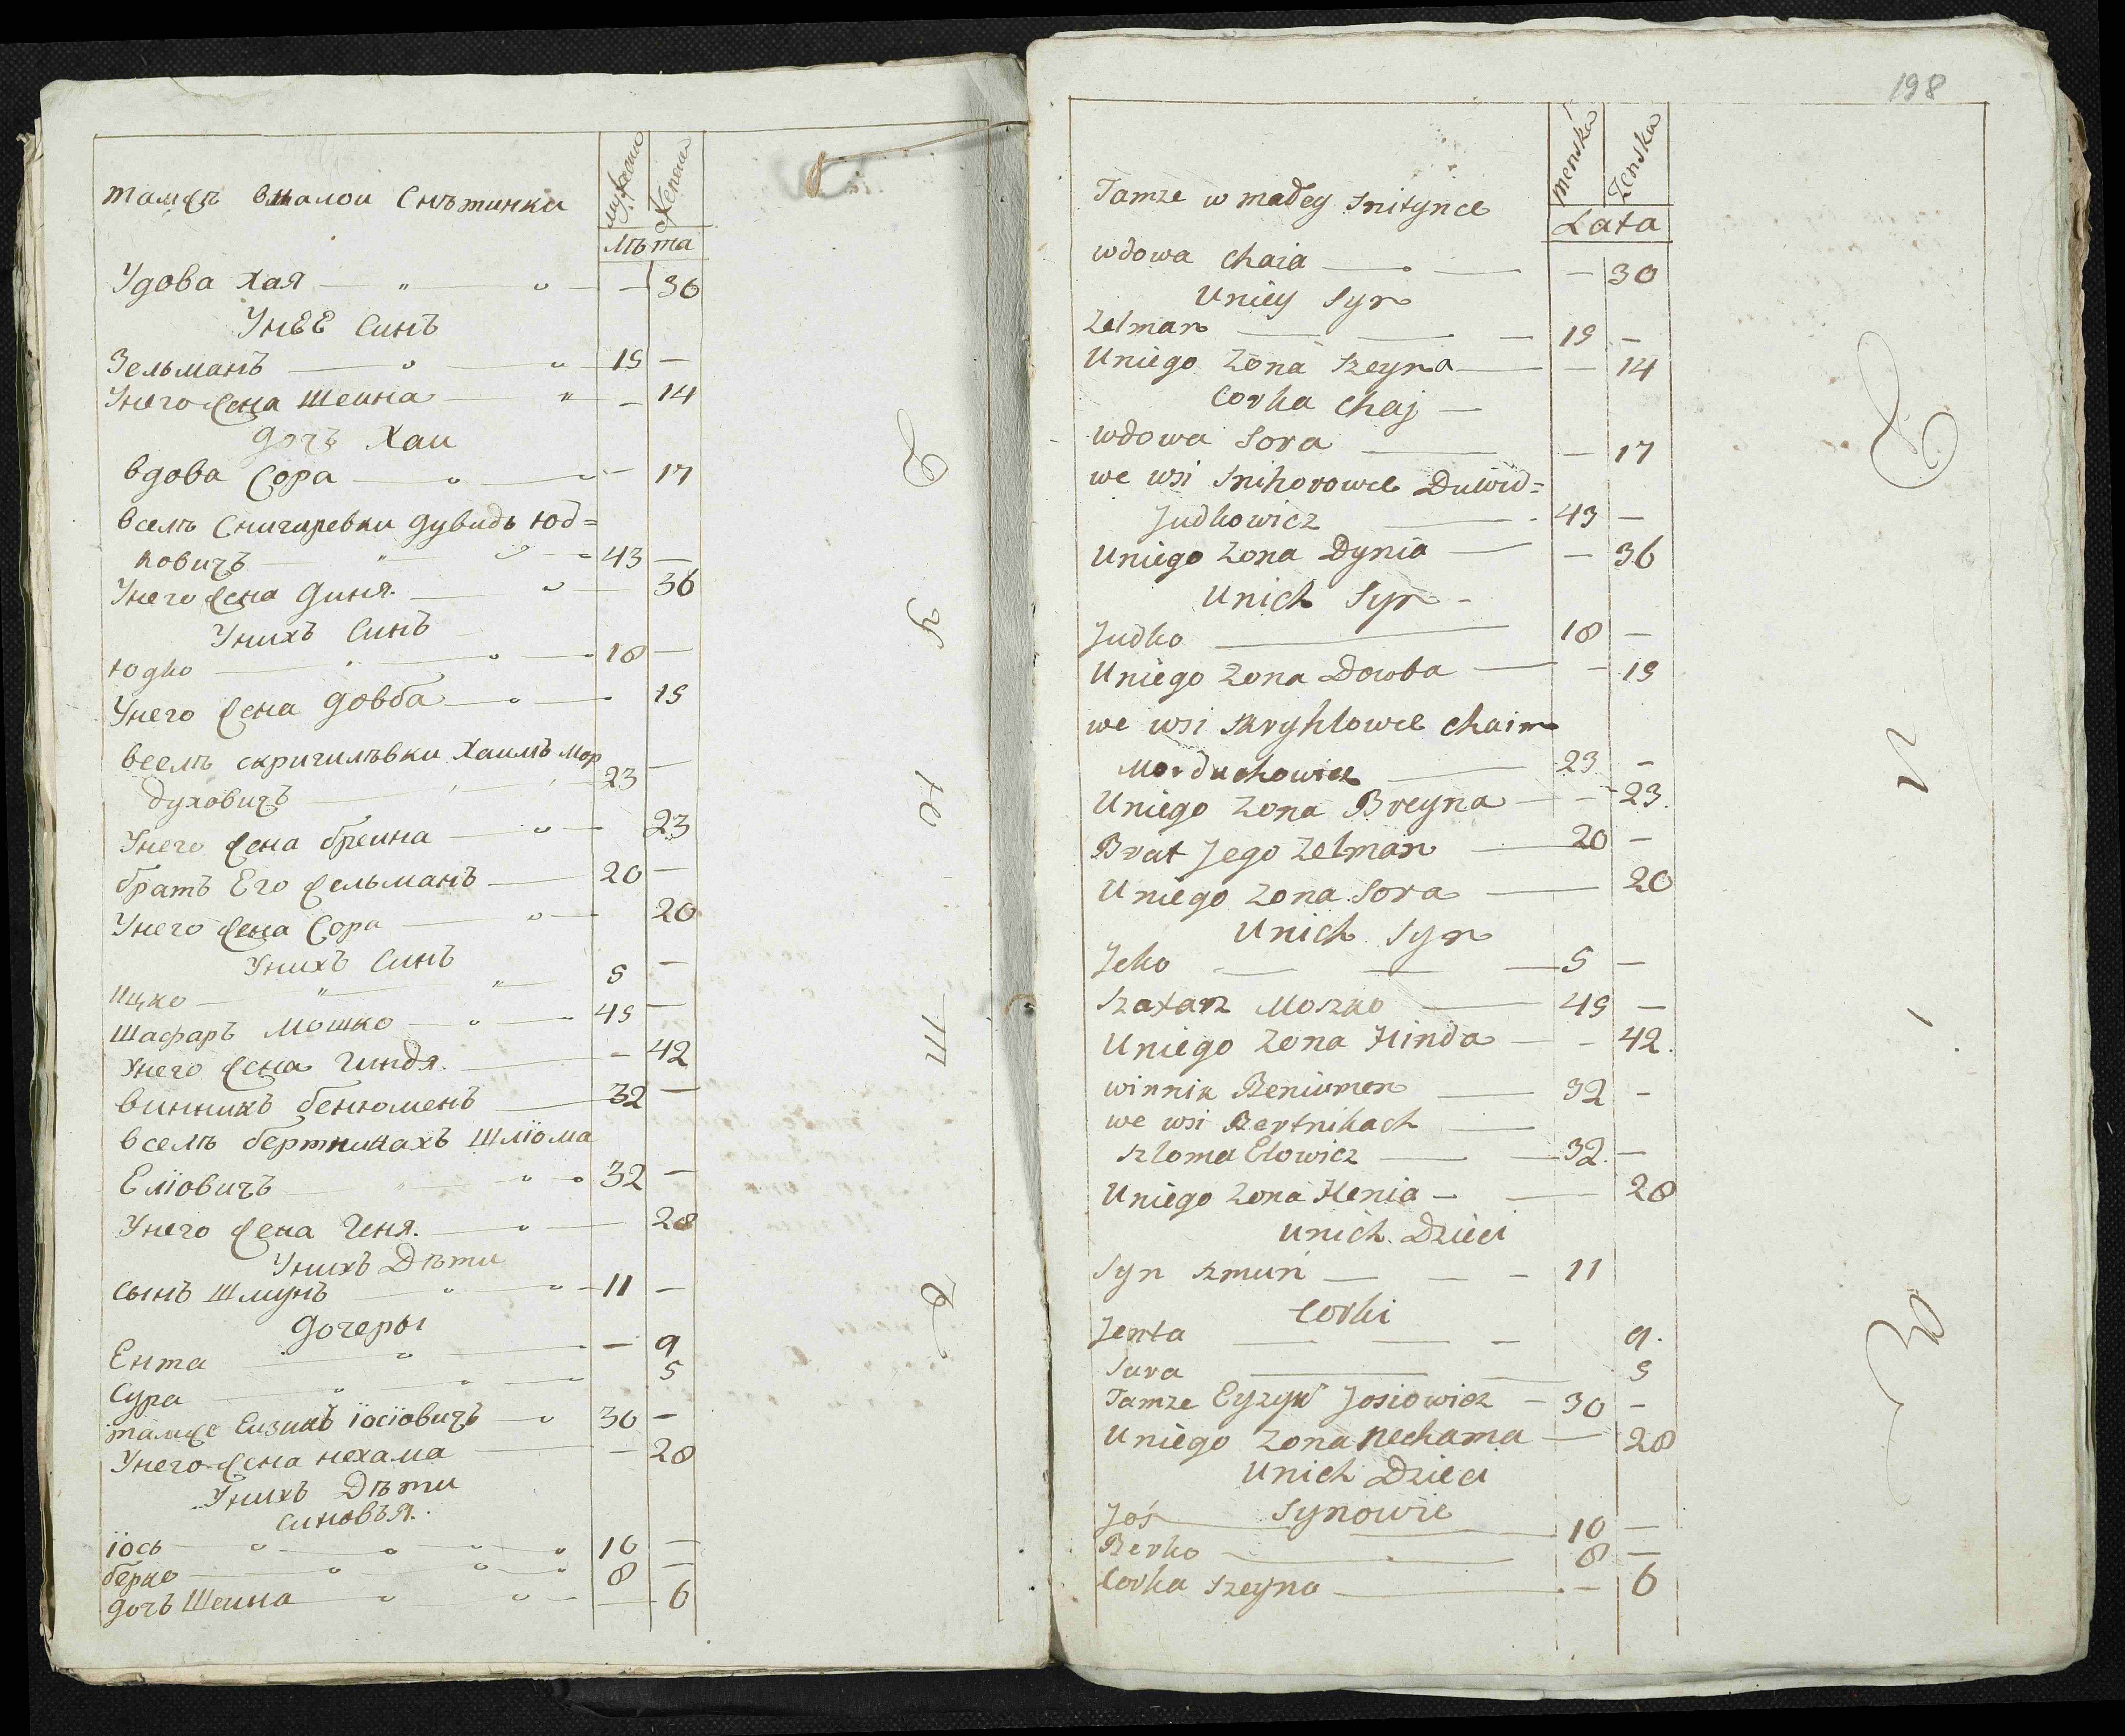 тамже вмалой Снѣтинки
мужеска
женска
лѣта
Удова Хая — — 30
Унеѣ Синъ
Зельманъ — 15 —
Унего жена Шеина — 14
дочь Хаи
вдова Сора — — 17
вселѣ Снигиревки дувидъ Юд=
ковичъ — 43 —
Унего жена диня — 36
Унихъ Синъ
Юдко — 18 —
Унего жена довба — 15
вселѣ скригилѣвки Хаимъ Мор
духовичъ — 23 —
Унего жена бреина — 23
братъ Его Зельманъ — 20 —
Унего жена Сора — 20
Унихъ Синъ
Ицко — 5 —
Шафаръ Мошко — 45 —
Унего жена Гиндя — 42
винникъ бенюменъ — 32 —
вселѣ бертникахъ Шлiома
Елiовичъ — 32 —
Унего жена Геня — 28
Унихъ Дѣти
сынъ Шмунъ — 11 —
дочеры
Ента — 9
Сура — 5
тамже Еизикъ iосiовичъ — 30 —
Унего жена нехама — 28
Унихъ Дѣти
синовъя
iось — 10 —
берко — 8 —
дочъ Шеина — 6
198
Tamze w małey Snitynce
męnska
Zenska
Lata
wdowa Chaia — — 30
Uniey Syn
Zelman — 15 —
Uniego Zona Szeyna — — 14
Corka Chaj —
wdowa Sora — — 17
we wsi Snihorowce Duwid=
Judkowicz — 43 —
Uniego Zona Dynia — — 36
Unich Syn —
Judko — 18 —
Uniego Zona Dowba — — 15
we wsi Skryhlowce Chaim
Morduchowicz — 23 —
Uniego Zona Breyna — — 23.
Brat Jego Zelman — 20 —
Uniego Zona Sora — 20
Unich Syn
Jcko — 5 —
Szafarz Moszko — 45 —
Uniego Zona Hinda — — 42.
winnik Beniumen — 32 —
we wsi Bertnikach —
Szloma Elowicz — 32. —
Uniego Zona Henia — — 28
Unich Dzieci
Syn Szmun — 11
Corki
Jenta — 9.
Sura — 5
Tamze Eyzyk Josiowicz — 30 —
Uniego Zona Nechama — 28
Unich Dzieci
Synowie
Joś — 10 —
Berko — 8 —
Corka Szeyna — — 6